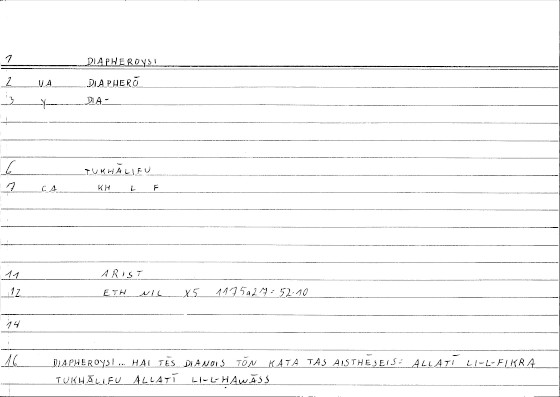 1 DIAPHEROYSI
2 VA DIAPHERŌ
3 Y DIA-
6 TUKHĀLIFU
7 CA KH L F
11 ARIST
12 ETH NIC X5 1175a27 = 52.10
14
16 DIAPHEROYSI.. HAI TĒS DIANOIS TŌN KATA TAS AISTHĒSEIS: ALLATĪ LI-L-FIKRA
TUKHĀLIFU ALLATĪ LI-L-ḤAWĀSS